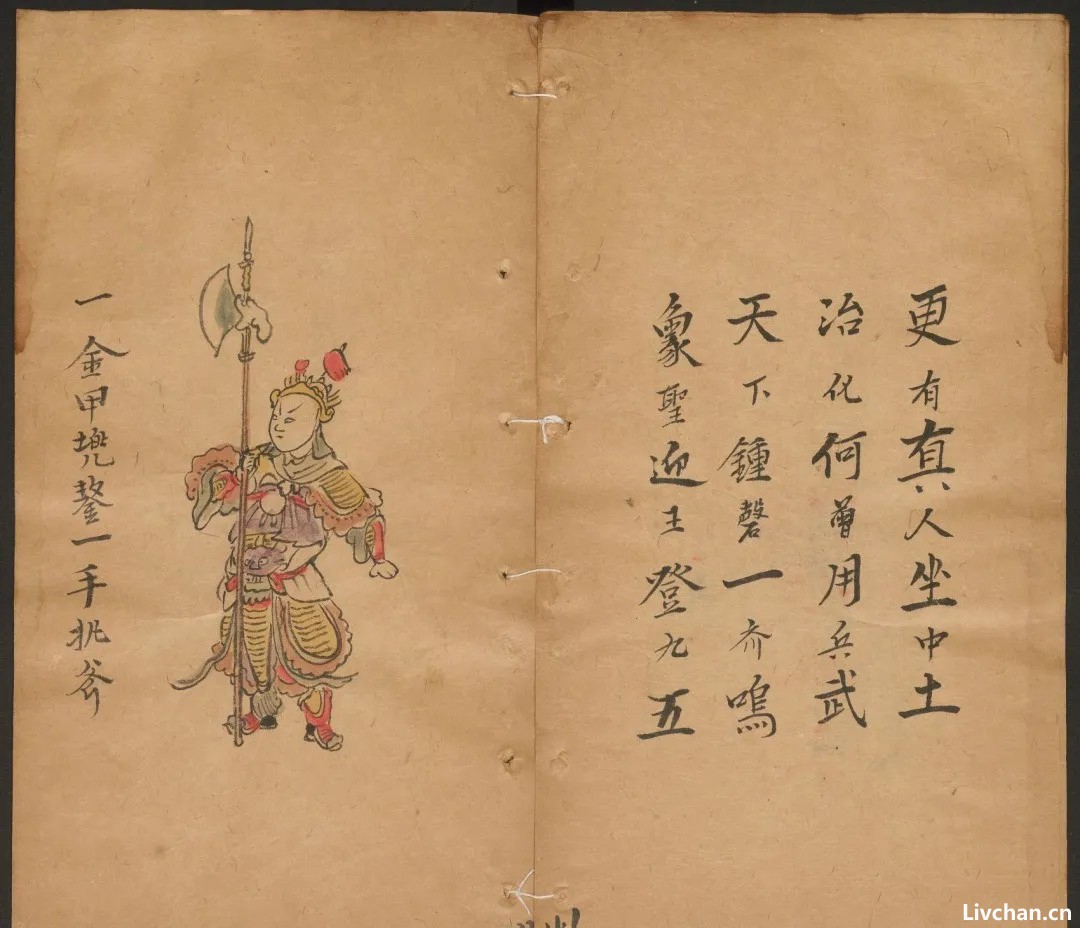 更有真人坐中土
治化何曾用兵武
天下鍾磬一齐鳴
象聖迎王登九五
一金甲兜鍪一手挑斧
Livchan.cn